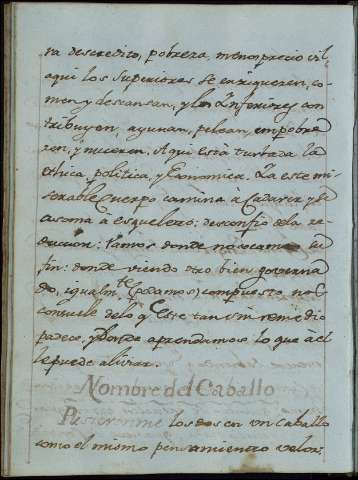 ra descredito, pobreza, menosprecio vil,
aqui los Superiores se enriquezen, co-
men y descansan, y los Ynferiores con
tribuyen, ayunan, pelean, empobre
zen, y mueren. Aqui està turbada la
Ethica, politica, y Economica. Ya este mi-
serable Cuerpo camina à Cadaver, y se
asoma à esqueleto: desconfio de la re-
duccion: Vamos donde no
fin: donde viendo otro bien governa
do, igualmte (podamos) compuesto nos
consuele de lo q Este tan sin remedio
padece, y donde aprendamos lo que à el
le puede aliviar.
Nombre del Caballo
Pusieronme los dos en un Caballo
como el mismo pensamiento veloz: